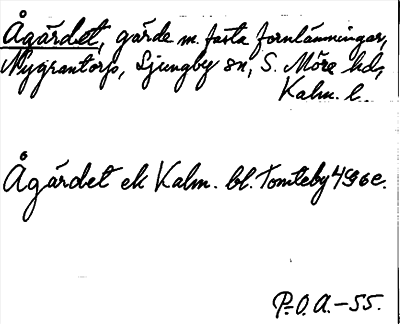 Ågärdet, gärde m. fasta fornlämningar,
Nygrantorp, Ljungby sn, S. Möre hd,
Kalm. l.
Ågärdet ek Kalm. bl. Tomteby 4G6e.
P.O.A.–55.